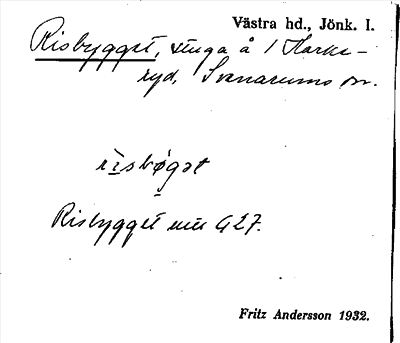 Västra hd., Jönk. l.
Risbygget, äng å 1 Harke-
ryd, Svenarums sn.
rìsbøgət
Risbygget 427.
Fritz Andersson 1932.